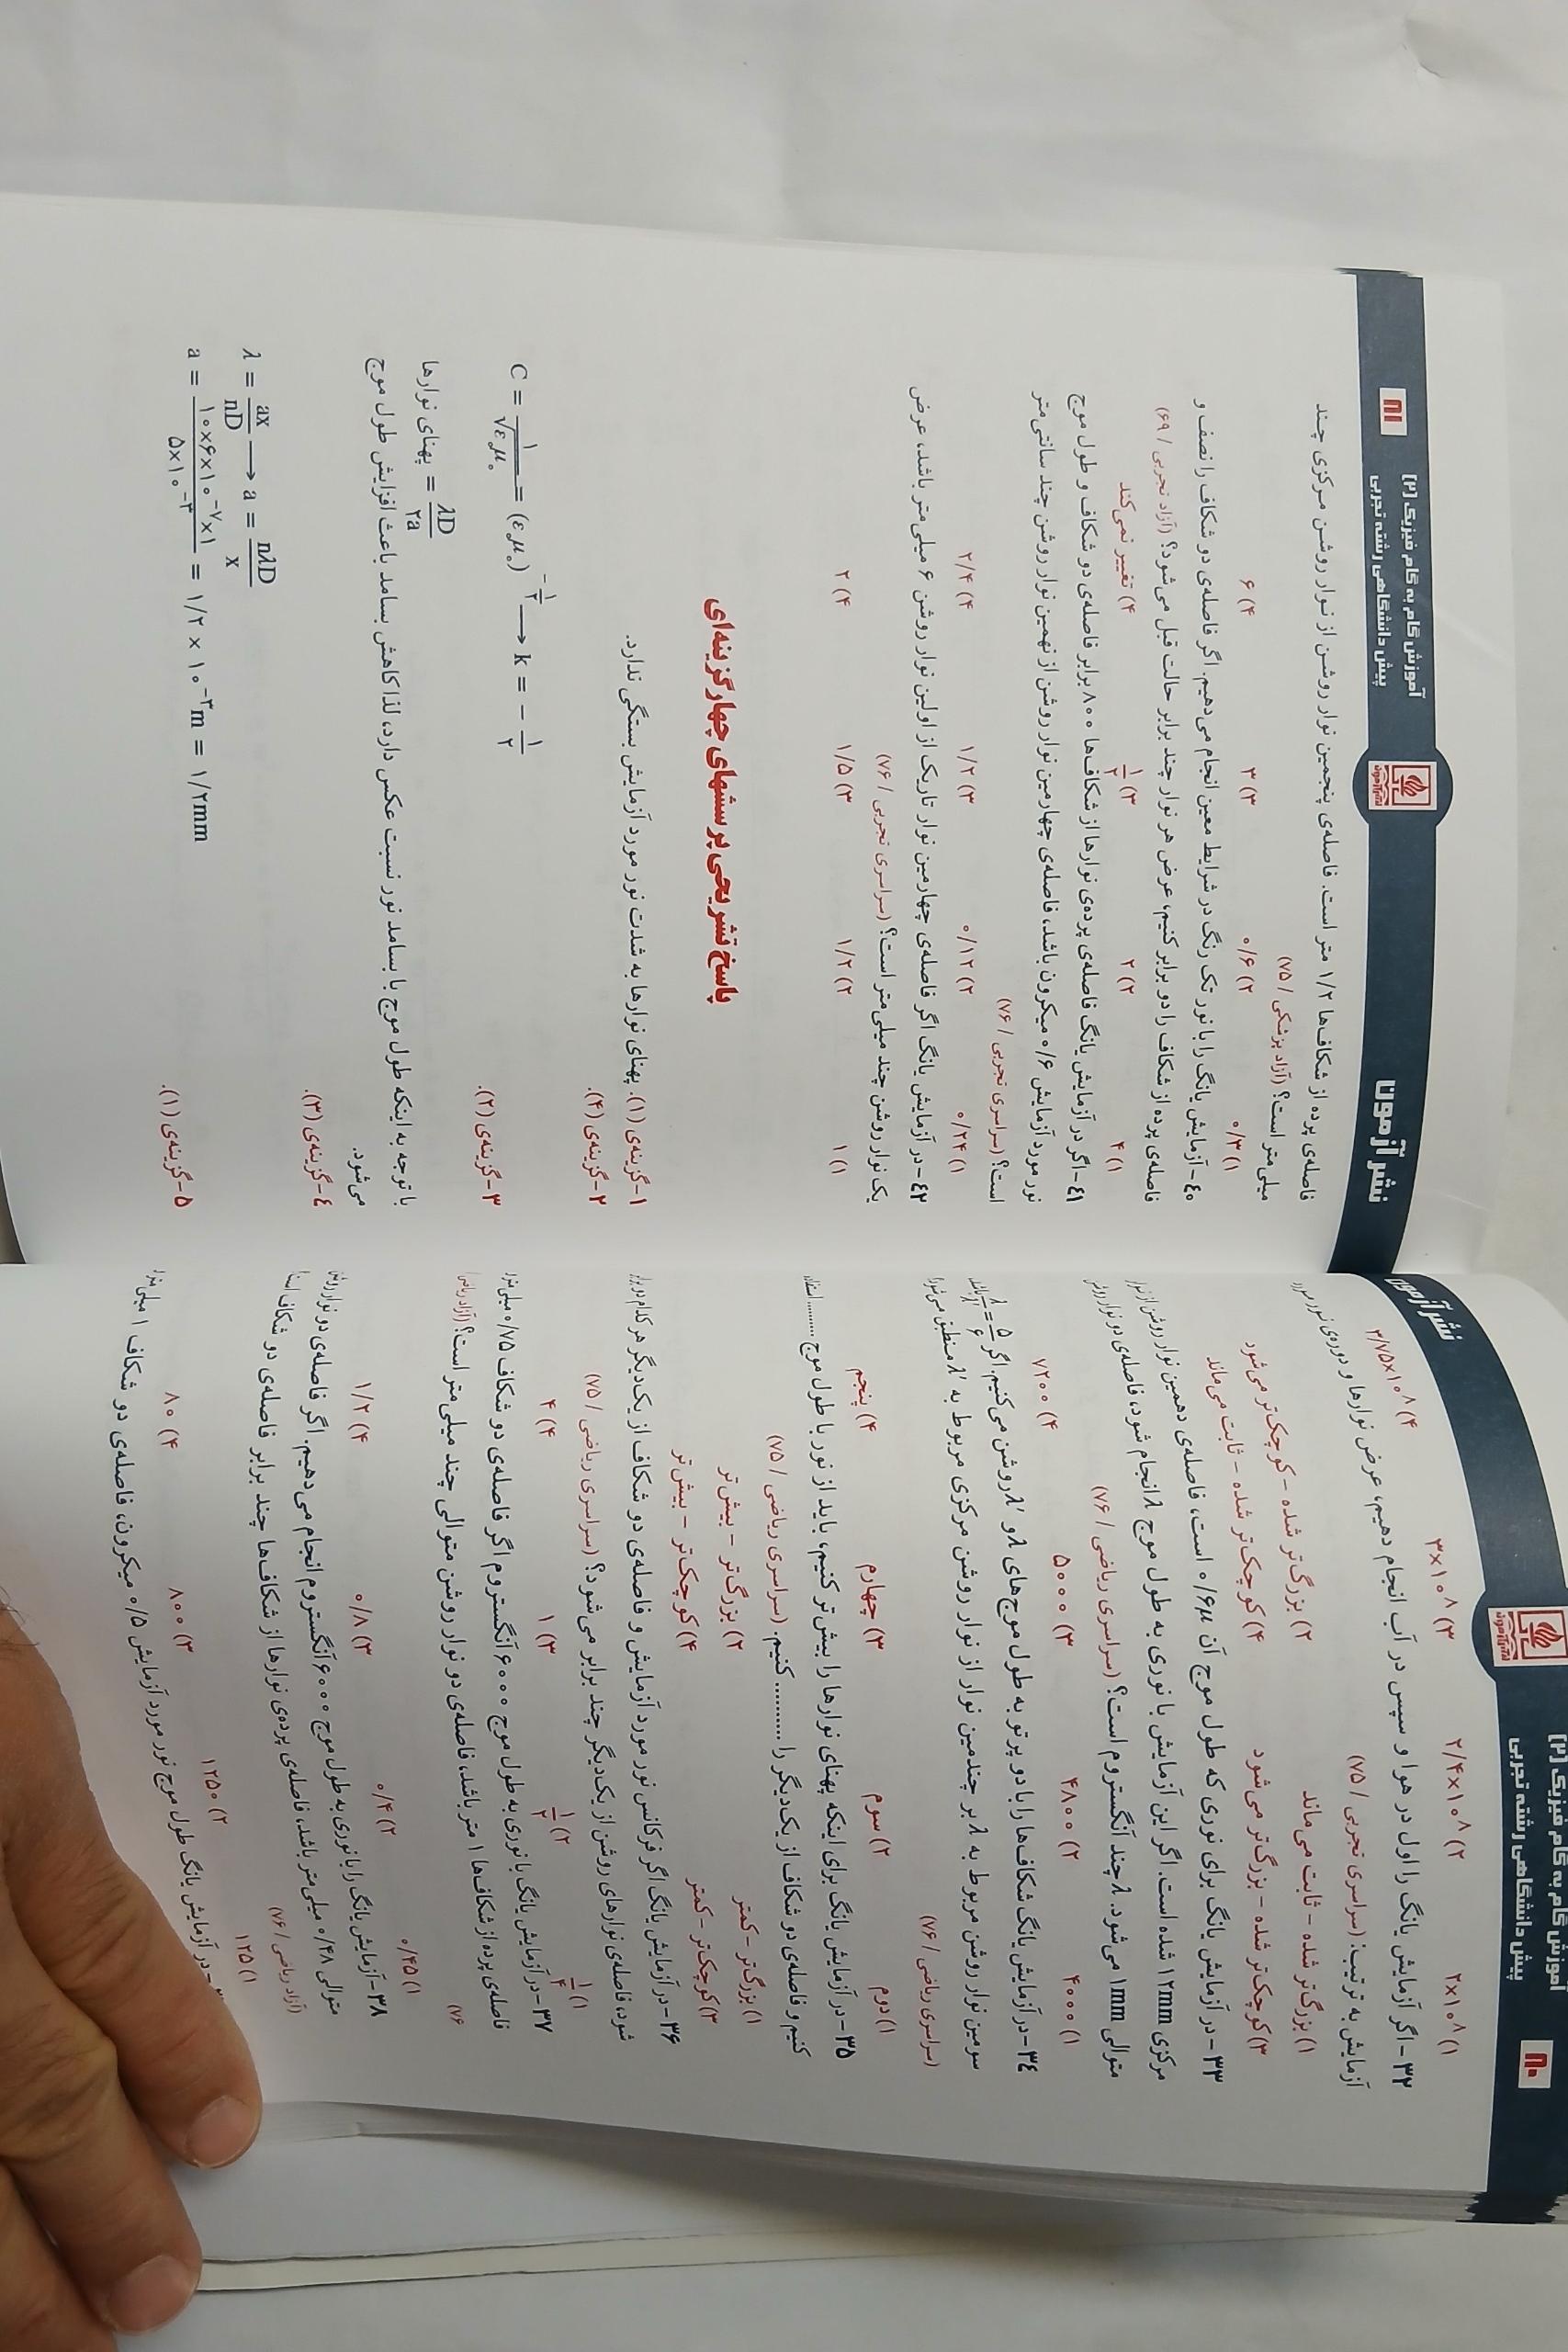 آموزش گام به گام فیزیک (۲)
پیش دانشگاهی رشته تجربی
۸۰
۱) ۲×۱۰^۸ ۲) ۲/۴×۱۰^۸ ۳) ۳×۱۰^۸ ۴) ۳/۷۵×۱۰^۸
۳۲-اگر آزمایش یانگ را اول در هوا و سپس در آب انجام دهیم، عرض نوارها و دوره‌ی نور مورد
آزمایش به ترتیب: (سراسری تجربی / ۷۵)
۱) بزرگ‌تر شده - ثابت می‌ماند ۲) بزرگ‌تر شده - کوچک‌تر می‌شود
۳) کوچک‌تر شده - بزرگ‌تر می‌شود ۴) کوچک‌تر شده - ثابت می‌ماند
۳۳-در آزمایش یانگ برای نوری که طول موج آن ۰/۶μ است، فاصله‌ی دهمین نوار روشن از نوار
مرکزی ۱۲mm شده است. اگر این آزمایش با نوری به طول موج λ انجام شود، فاصله‌ی دو نوار روشن
متوالی ۱mm می‌شود. λ چند آنگستروم است؟ (سراسری ریاضی / ۷۶)
۱) ۴۰۰۰ ۲) ۴۸۰۰ ۳) ۵۰۰۰ ۴) ۷۲۰۰
۳٤-در آزمایش یانگ شکاف‌ها را با دو پرتو به طول موج‌های λ و λ' روشن می‌کنیم. اگر λ/λ' = ۵/۶ باشد
سومین نوار روشن مربوط به λ بر چندمین نوار از نوار روشن مرکزی مربوط به λ' منطبق می‌شود؟
(سراسری ریاضی / ۷۶)
۱) دوم ۲) سوم ۳) چهارم ۴) پنجم
۳۵-در آزمایش یانگ برای اینکه پهنای نوارها را بیش‌تر کنیم، باید از نور با طول موج .......... استفاده
کنیم و فاصله‌ی دو شکاف از یک‌دیگر را .......... کنیم. (سراسری ریاضی / ۷۵)
۱) بزرگ‌تر - کمتر ۲) بزرگ‌تر - بیش‌تر
۳) کوچک‌تر - کمتر ۴) کوچک‌تر - بیش‌تر
۳۶-در آزمایش یانگ اگر فرکانس نور مورد آزمایش و فاصله‌ی دو شکاف از یک‌دیگر هر کدام دو برابر
شود، فاصله‌ی نوارهای روشن از یک‌دیگر چند برابر می‌شود؟ (سراسری ریاضی / ۷۵)
۱) ۱/۴ ۲) ۱/۲ ۳) ۱ ۴) ۴
۳۷-در آزمایش یانگ با نوری به طول موج ۶۰۰۰ آنگستروم اگر فاصله‌ی دو شکاف ۰/۷۵ میلی‌متر و
فاصله‌ی پرده از شکاف‌ها ۱ متر باشد، فاصله‌ی دو نوار روشن متوالی چند میلی‌متر است؟ (آزاد ریاضی
/ ۷۶)
۱) ۰/۴۵ ۲) ۰/۴ ۳) ۰/۸ ۴) ۱/۲
۳۸-آزمایش یانگ را با نوری به طول موج ۶۰۰۰ آنگستروم انجام می‌دهیم. اگر فاصله‌ی دو نوار روشن
متوالی ۰/۴۸ میلی‌متر باشد، فاصله‌ی پرده‌ی نوارها از شکاف‌ها چند برابر فاصله‌ی دو شکاف است؟
(آزاد ریاضی / ۷۶)
۱) ۱۲۵ ۲) ۱۲۵۰ ۳) ۸۰۰ ۴) ۸۰
در آزمایش یانگ طول موج نور مورد آزمایش ۰/۵ میکرون، فاصله‌ی دو شکاف ۱ میلی‌متر
نشر آزمون
نشر آزمون
آموزش گام به گام فیزیک (۲)
پیش دانشگاهی رشته تجربی
۸۱
فاصله‌ی پرده از شکاف‌ها ۱/۲ متر است. فاصله‌ی پنجمین نوار روشن از نوار روشن مرکزی چند
میلی‌متر است؟ (آزاد پزشکی / ۷۵)
۱) ۰/۳ ۲) ۰/۶ ۳) ۳ ۴) ۶
٤۰-آزمایش یانگ را با نور تک رنگ در شرایط معین انجام می‌دهیم. اگر فاصله‌ی دو شکاف را نصف و
فاصله‌ی پرده از شکاف را دو برابر کنیم، عرض هر نوار چند برابر حالت قبل می‌شود؟ (آزاد تجربی / ۶۹)
۱) ۴ ۲) ۲ ۳) ۱/۲ ۴) تغییر نمی‌کند
٤۱-اگر در آزمایش یانگ فاصله‌ی پرده‌ی نوارها از شکاف‌ها ۸۰۰ برابر فاصله‌ی دو شکاف و طول موج
نور مورد آزمایش ۰/۶ میکرون باشد، فاصله‌ی چهارمین نوار روشن از نهمین نوار روشن چند سانتی‌متر
است؟ (سراسری تجربی / ۷۶)
۱) ۰/۲۴ ۲) ۰/۱۲ ۳) ۱/۲ ۴) ۲/۴
٤۲-در آزمایش یانگ اگر فاصله‌ی چهارمین نوار تاریک از اولین نوار روشن ۶ میلی‌متر باشد، عرض
یک نوار روشن چند میلی‌متر است؟ (سراسری تجربی / ۷۶)
۱) ۱ ۲) ۱/۲ ۳) ۱/۵ ۴) ۲
پاسخ تشریحی پرسشهای چهارگزینه‌ای
۱-گزینه‌ی (۱). پهنای نوارها به شدت نور مورد آزمایش بستگی ندارد.
۲-گزینه‌ی (۴).
C = ۱/√ε₀μ₀ = (ε₀μ₀)^(-۱/۲) → k = - ۱/۲
۳-گزینه‌ی (۲).
پهنای نوارها = λD/۲a
با توجه به اینکه طول موج با بسامد نور نسبت عکس دارد، لذا کاهش بسامد باعث افزایش طول موج
می‌شود.
٤-گزینه‌ی (۳).
λ = ax/nD → a = nλD/x
a = ۱۰×۶×۱۰^-۷×۱/۵×۱۰^-۳ = ۱/۲ × ۱۰^-۳m = ۱/۲mm
۵-گزینه‌ی (۱).